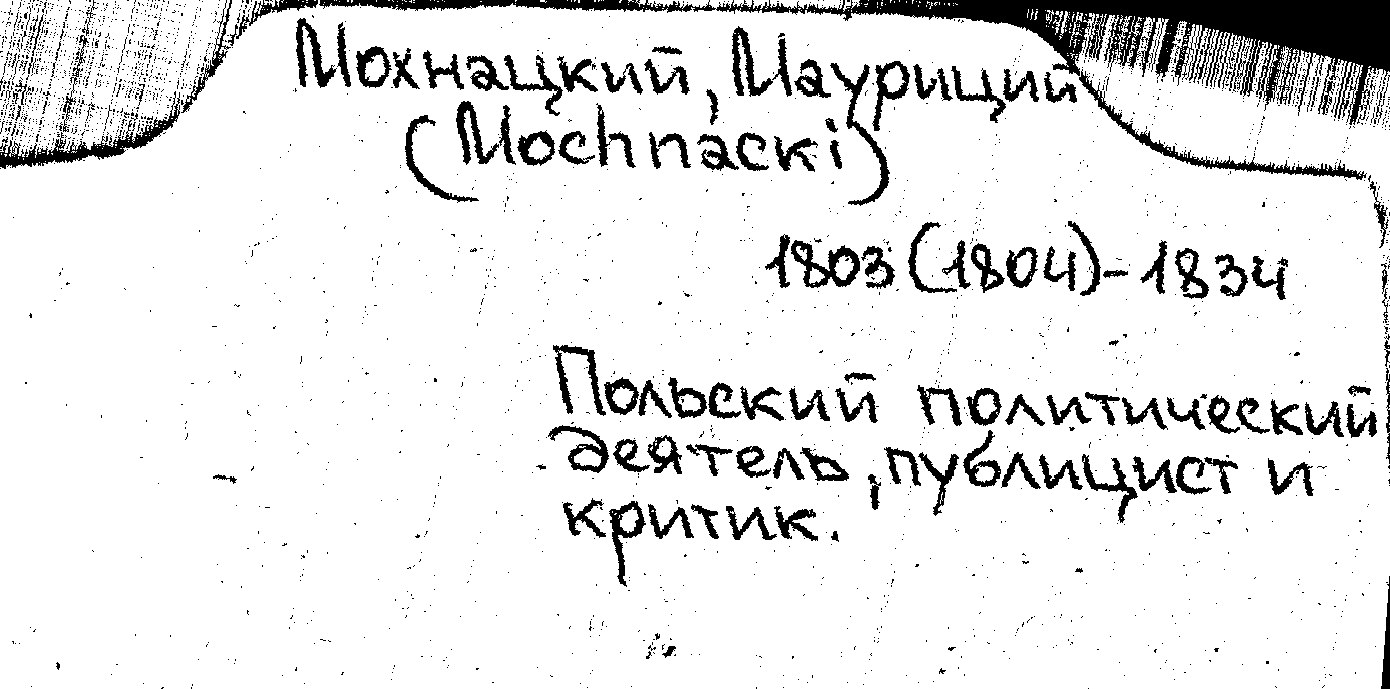 Мохнацкий, Мауриций
(Mochnacki)
1803 (1804) - 1834
Польский политический
деятель, публицист и
критик.